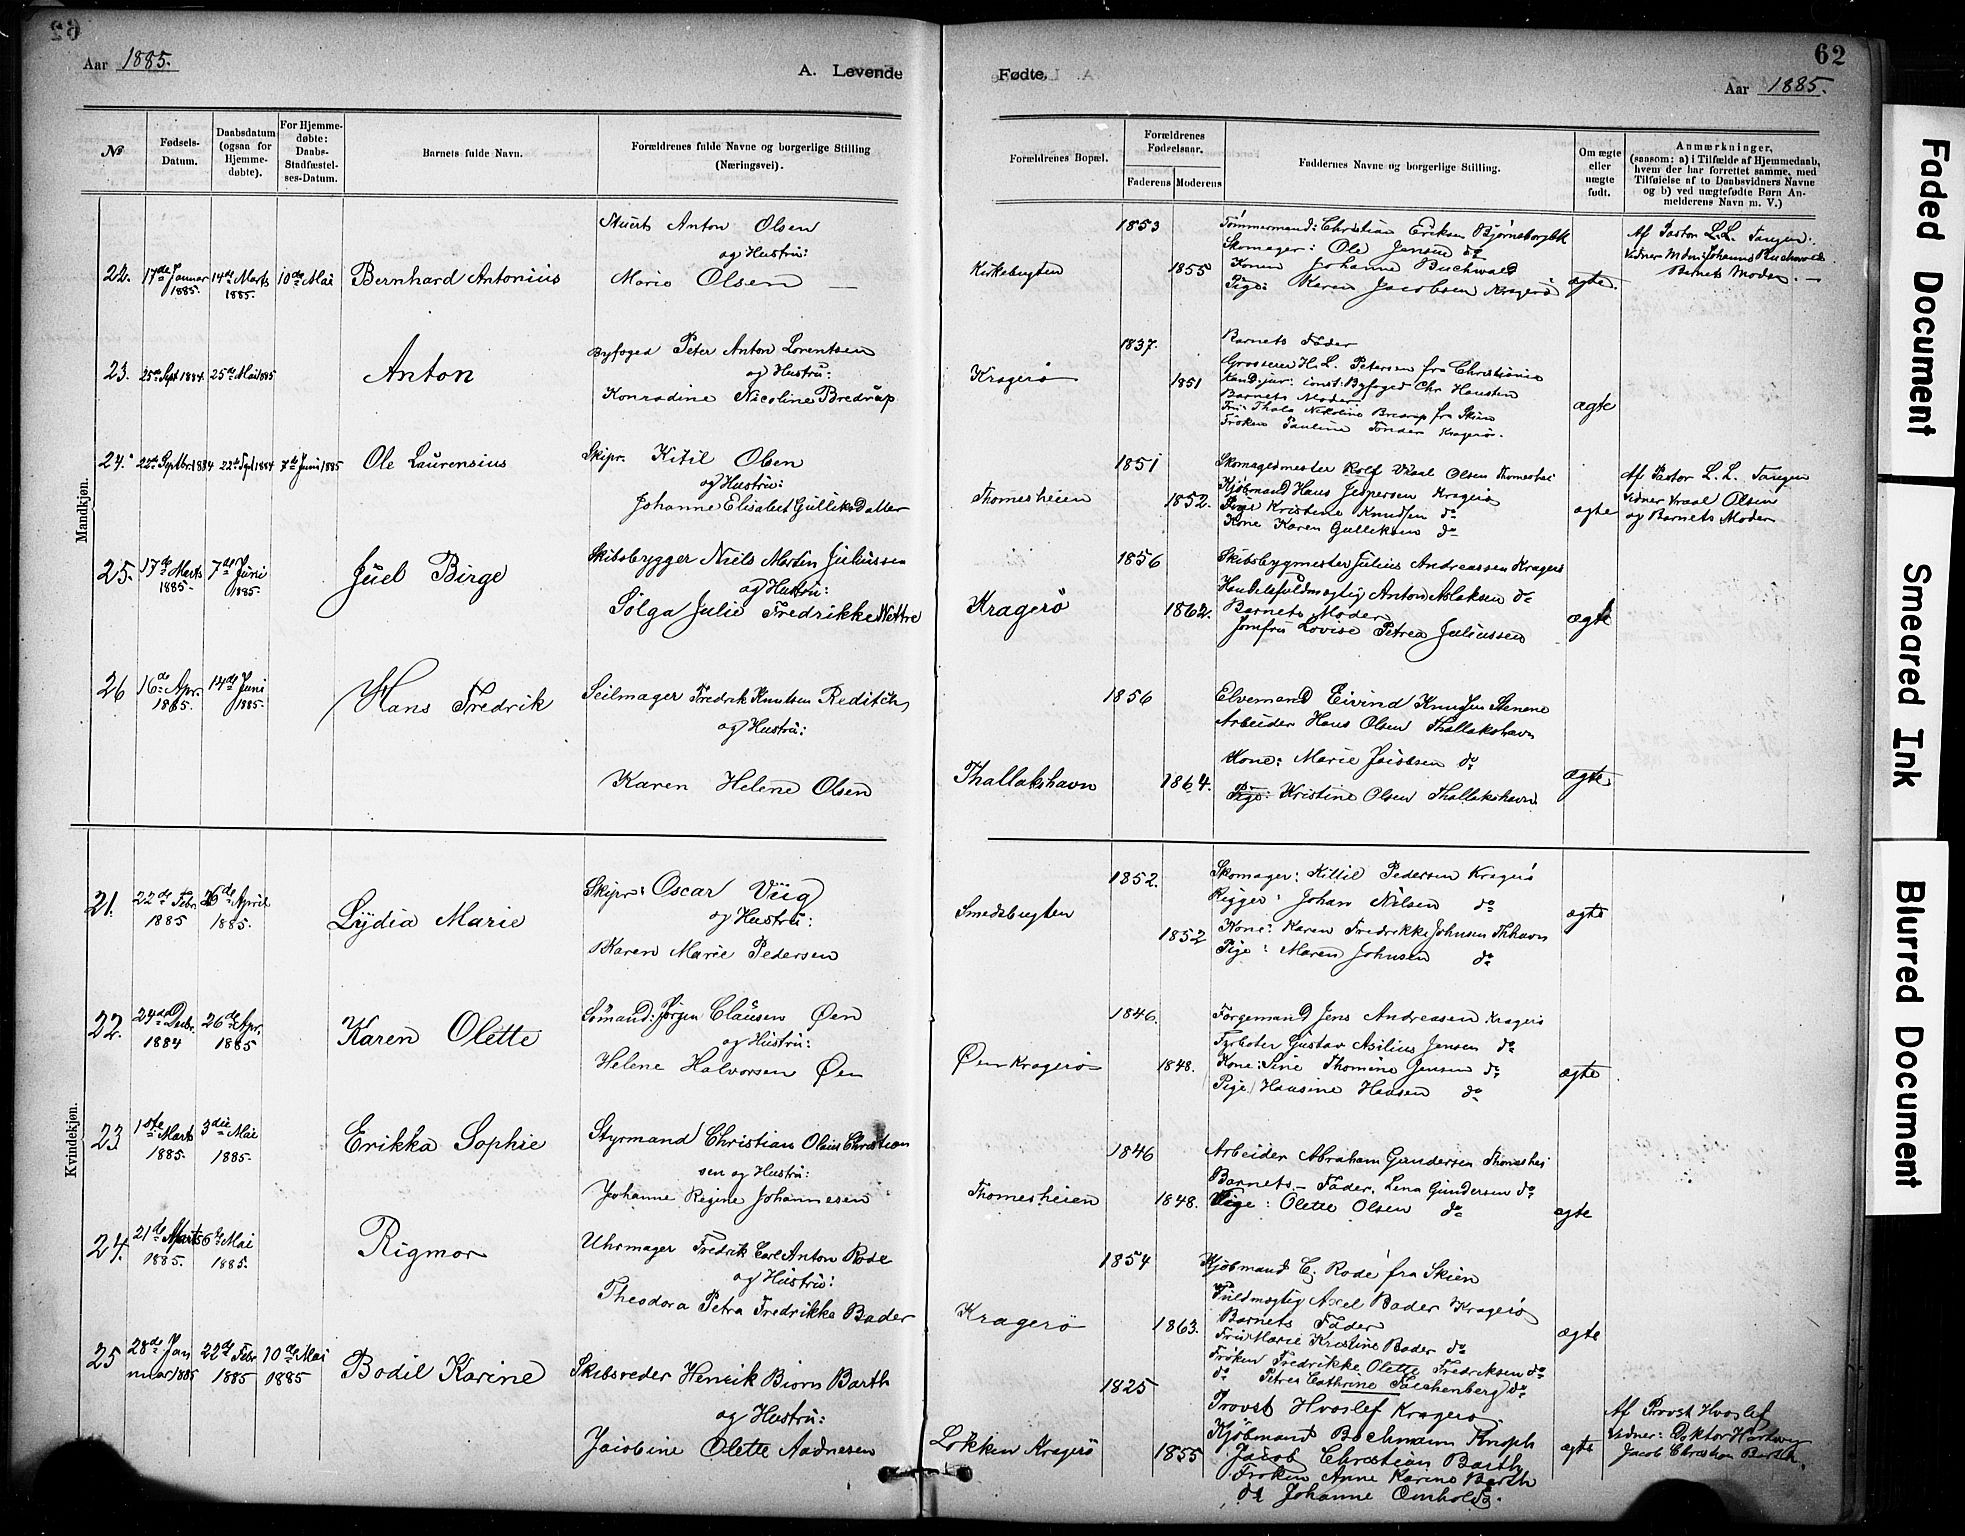 62
Aar 1885.
A. Levende
Fødte.
Aar 1885.
No
Fødsels-Datum.
Daabsdatum (ogsaa for Hjemme-døbte).
For Hjemme-døbte: Daabs-Stadfæstel-ses-Datum.
Barnets fulde Navn.
Forældrenes fulde Navne og borgerlige Stilling (Næringsvei).
Forældrenes Bopæl.
Forældrenes Fødselsaar.
Faderens
Moderens
Faddernes Navne og borgerlige Stilling.
Om ægte eller uægte født.
Anmærkninger, (saasom: a) i Tilfælde af Hjemmedaab, hvem der har forrettet samme, med Tilføielse af to Daabsvidners Navne og b) ved uægtefødte Børn Anmelderens Navn m. V.)
Mandkjøn.
22. 17de Januar 1885. 14de Marts 1885. 10de Mai Bernhard Antonius
Stuert Anton Olsen
og Hustru:
Marie Olsen
Kirkebugten
1853
1855
Tømmermand: Christian Eriksen Bjørneborgbk
Skomager: Ole Jensen do
Konen Johanne Buchwald
Pige: Karen Jacobsen Kragerö
ægte.
Af Pastor L.L. Tangen.
Vidner Mdm: Johanne Buchwald
Barnets Moder.
23. 25de Sept 1884. 25de Mai 1885 Anton
Byfoged Peter Anton Lorentsen
og Hustru:
Konradine Nicoline Bredrup
Kragerö
1837.
1851
Barnets Fader
Grosserer H. L. Petersen fra Christiania
Kand. jur: const: Byfoged Chr Hansten
Barnets Moder
Fru Thala Nikoline Bredrup fra Skien
Frøken Pauline Tønder Kragerö.
ægte
24. 22de Septbr. 1884 22de Spt 1884 7de Juni 1885 Ole Laurensius
Skipr. Kitil Olsen
og Hustru:
Johanne Elisabet Gulliksdatter
Thomesheien
1851
1852.
Skomagermester Rolf Vraal Olsen Thomeshei
Kjøbmand Hans Jespersen Kragerö
Pige Kristine Knudsen do
Kone Karen Gulliksen do
ægte
Af Pastor L. L. Tangen
Vidner Vraal Olsen
og Barnets Moder
25. 17de Marts 1885. 7de Juni 1885. Juel Birge
Skibsbygger Niels Martin Juliussen
og Hustru:
Solga Julie Fredrikke Wettre
Kragerö
1856
1862.
Skibsbygmester Julius Andreassen Kragerö
Handelsfuldmægtig Anton Aslaksen do
Barnets Moder
Jomfru Lovise Petrea Juliussen
ægte
26 16de Apr. 1885. 14de Juni 1885. Hans Fredrik
Seilmager Fredrik Knutsen Reditch
og Hustru:
Karen Helene Olsen
Thallakshavn
1856
1864.
Elvemand Eivind Knudsen Stenene
Arbeider Hans Olsen Thallakshavn
Kone: Marie Jacobsen do
Pige: Kristine Olsen Thallakshavn
ægte
Kvindekjøn.
21. 22de Febr. 1885 26de April 1885. Lydia Marie
Skipr: Oscar Viig
og Hustru:
Karen Marie Pedersen
Smedsbugten
1852.
1852
Skomager: Kittil Pedersen Kragerö
Rigger: Johan Nilsen do
Kone: Karen Fredrikke Johnsen Thhavn
Pige: Maren Johnsen do
ægte
22. 24de Decbr. 1884 26de Apr. 1885 Karen Olette
Sömand: Jörgen Clausen Øen
og Hustru:
Helene Halvorsen Øen
Øen Kragerö
1846.
1848.
Færgemand Jens Andreasen Kragerö
Fyrbøter Gustav Asilius Jensen do
Kone: Sine Thomine Jensen do
Pige Hansine Hansen do
ægte
23 1ste Marts 1885. 3die Mai 1885. Erikka Sophie
Styrmand Christian Olaus Christian
sen og Hustru:
Johanne Regine Johannesen
Thomesheien
1846
1848.
Arbeider Abraham Gundersen Thomeshei
Barnets Fader. Lena Gundersen do
Pige: Olette Olsen do
ægte
24. 21de Marts 1885. 6te Mai 1885. Rigmor
Uhrmager Fredrik Carl Anton Rode
og Hustru:
Theodora Petra Fredrikke Bader
Kragerö
1854
1863.
Kjøbmand C. Rode fra Skien
Fuldmægtig Axel Bader Kragerö
Barnets Fader
Fru Marie Kristine Bader do
Frøken Fredrikke Olette Fredriksen do
do Petrea Cathrine Falchenberg do
ægte
25 28de Jan
nuar 1885 22de Febr 1885 10de Mai 1885 Bodil Karine
Skibsreder Henrik Biørn Barth
og Hustru:
Jacobine Olette Aadnesen
Løkken Kragerö
1825
1855
Provst Hvoslef Kragerö
Kjøbmand Bochmann Knoph
Jacob Christian Barth
Frøken Anne Karine Barth
do Johanne Omholt do.
ægte
Af Provst Hvoslef
Vidner: Doktor Hartwig
Jacob Christian Barth.
Faded Document
Smeared Ink
Blurred Document